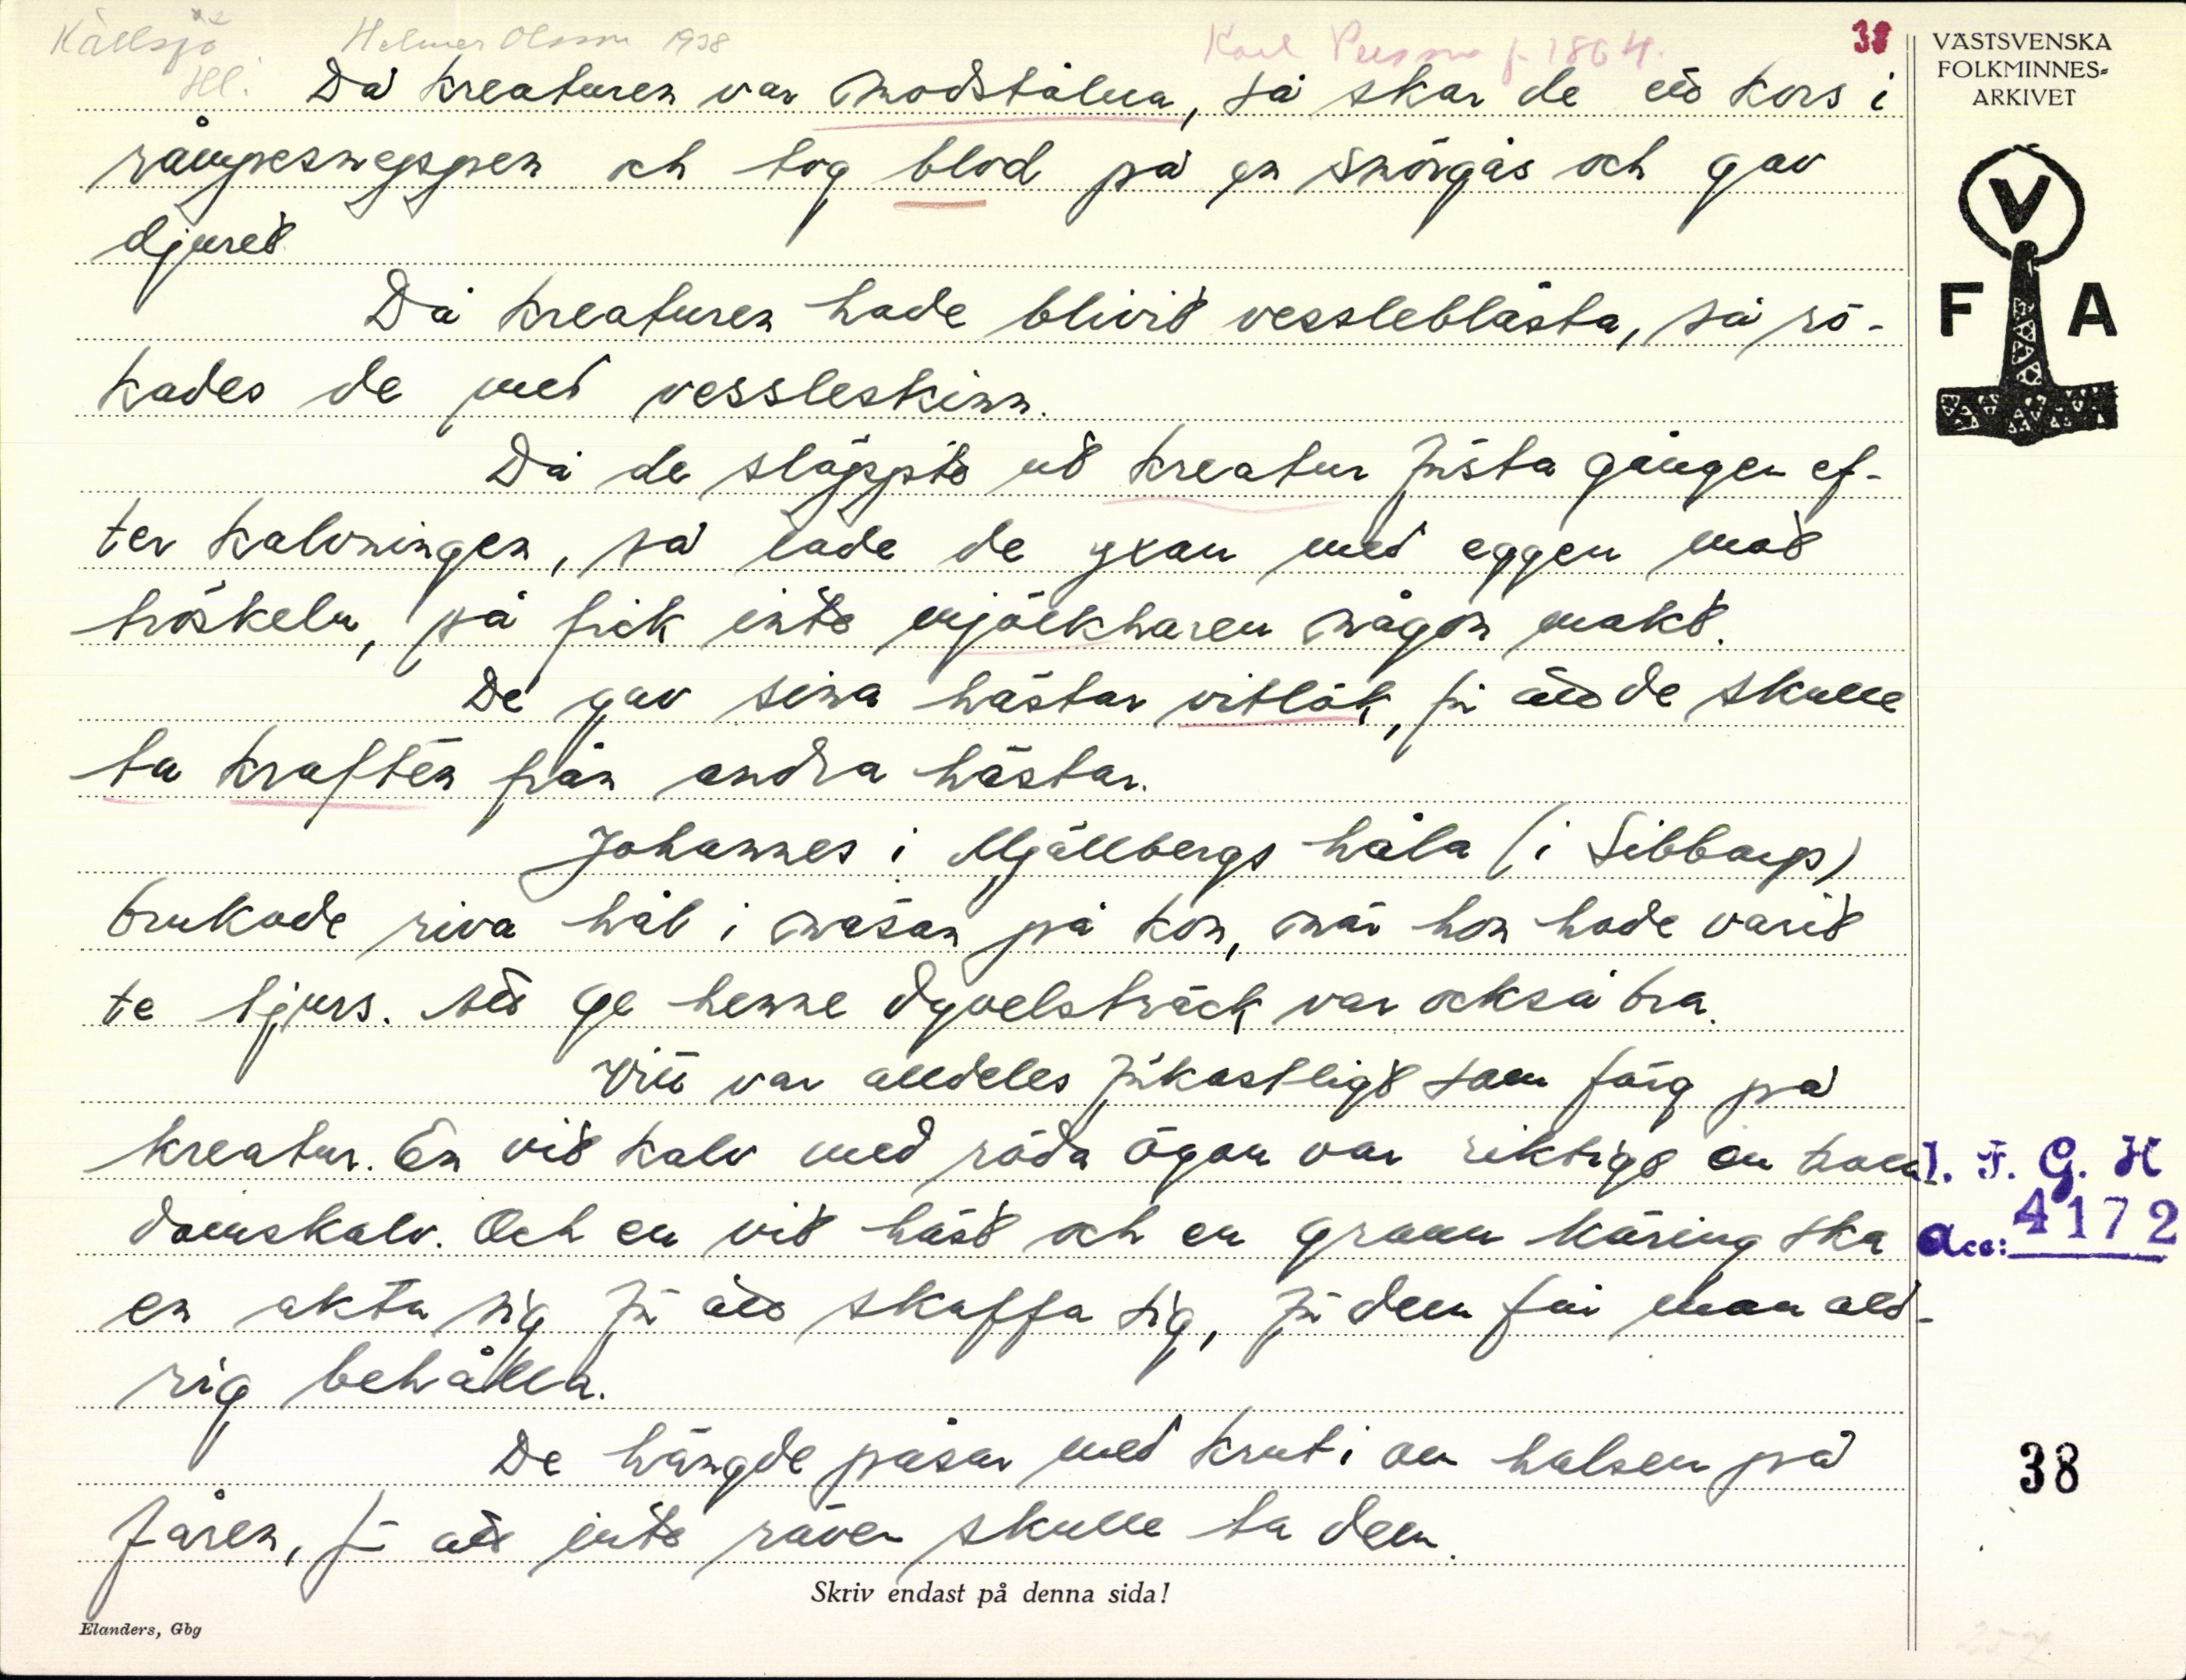 Källsjö Helmer Olsson 1938 Karl Persson f. 1864. 38
Hl. Då kreaturen var modstålna, så skar de ett kors i
rumpesneppen och tog blod på en smörgås och gav
djuret
Då kreaturen hade blivit vessleblåsta, så rö-
kades de med vessleskinn.
Då de släppte ut kreatur första gången ef-
ter kalvningen, så lade de yxan med eggen mot
tröskeln, så fick inte mjölkharen någon makt.
De gav sina hästar vitlök, för att de skulle
ta kraften från andra hästar.
Johannes i Mjällbergs håla (i Sibbarp)
brukade riva hål i näsan på kon, när hon hade varit
te tjurs. Att ge henne dyvelsträck var också bra.
Vitt var alldeles förkastligt som färg på
kreatur. En vit kalv med röda ögon var riktigt en troll
domskalv. Och en vit häst och en grann käring ska
en akta sig för att skaffa sig, för dem får man ald-
rig behålla.
De hängde påsar med krut i om halsen på
fåren, för att inte räven skulle ta dem.
Skriv endast på denna sida!
Elanders, Gbg
VÄSTSVENSKA
FOLKMINNES-
ARKIVET
V
F A
I. F. G. H
Acc: 4172
38